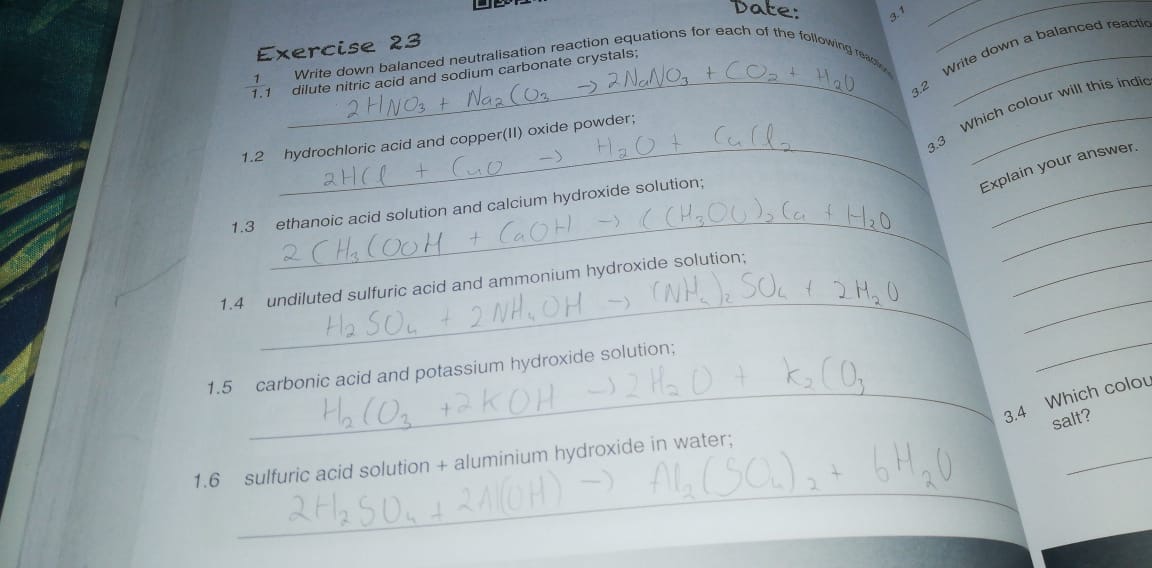 Date:
Exercise 23
1 Write down balanced neutralisation reaction equations for each of the following
1.1 dilute nitric acid and sodium carbonate crystals;
2HNO₃ + Na₂CO₃ → 2NaNO₃ + CO₂ + H₂O
1.2 hydrochloric acid and copper(II) oxide powder;
2HCl + CuO → H₂O + CuCl₂
1.3 ethanoic acid solution and calcium hydroxide solution;
2CH₃COOH + CaOH → (CH₃OO)₂Ca + H₂O
1.4 undiluted sulfuric acid and ammonium hydroxide solution;
H₂SO₄ + 2NH₄OH → (NH₄)₂SO₄ + 2H₂O
1.5 carbonic acid and potassium hydroxide solution;
H₂CO₃ + 2KOH → 2H₂O + K₂CO₃
1.6 sulfuric acid solution + aluminium hydroxide in water;
2H₂SO₄ + 2Al(OH) → Al₂(SO₄)₂ + 6H₂O
3.1
3.2 Write down a balanced
3.3 Which colour will this
Explain your answer.
3.4 Which
salt?